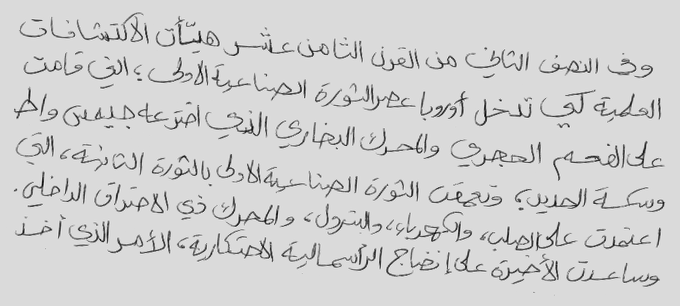 وفى النصف الثاني من القرن الثامن عشر هيّأت الاكتشافات
العلمية لكي تدخل أوروبا عصر الثورة الصناعية الاولى؛ التي قامت
على الفحم الحجري والمحرك البخاري الذي اخترعه جيمس واط
وسكة الحديد؛ وتعمقت الثورة الصناعية الاولى بالثورة الثانية، التي
اعتمدت على الصلب، والكهرباء، والبترول، والمحرك ذي الاحتراق الداخلي.
وساعدت الأخيرة على إنضاج الرأسمالية الاحتكارية، الأمر الذي أخذ